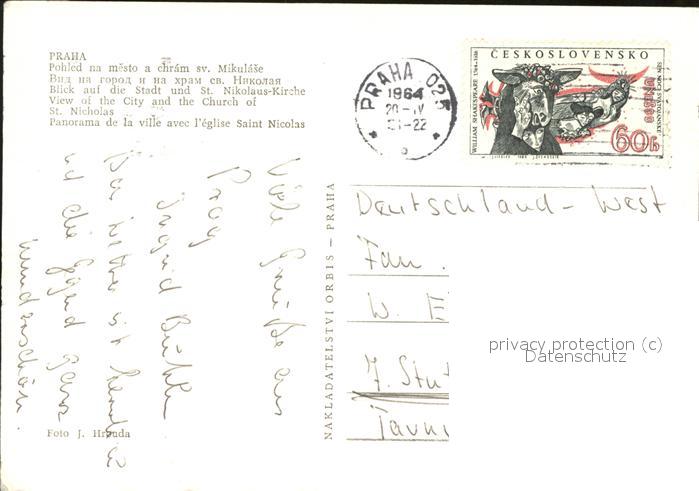 PRAHA
Pohled na město a chrám sv. Mikuláše
Вид на город и на храм св. Николая
Blick auf die Stadt und St. Nikolaus-Kirche
View of the City and the Church of
St. Nicholas
Panorama de la ville avec l'église Saint Nicolas
PRAHA 025
1964
ČESKOSLOVENSKO
WILLIAM SHAKESPEARE 1564-1616
UNESCO
60h
Viele Grüße aus
Prag
Ingrid
Das Wetter ist herrlich
und die Gegend ganz
wunderschön.
NAKLADATELSTVÍ ORBIS – PRAHA
Deutschland - West
Fam.
W. E
7. Stut
Foto J. Hrouda
privacy protection (c)
Datenschutz